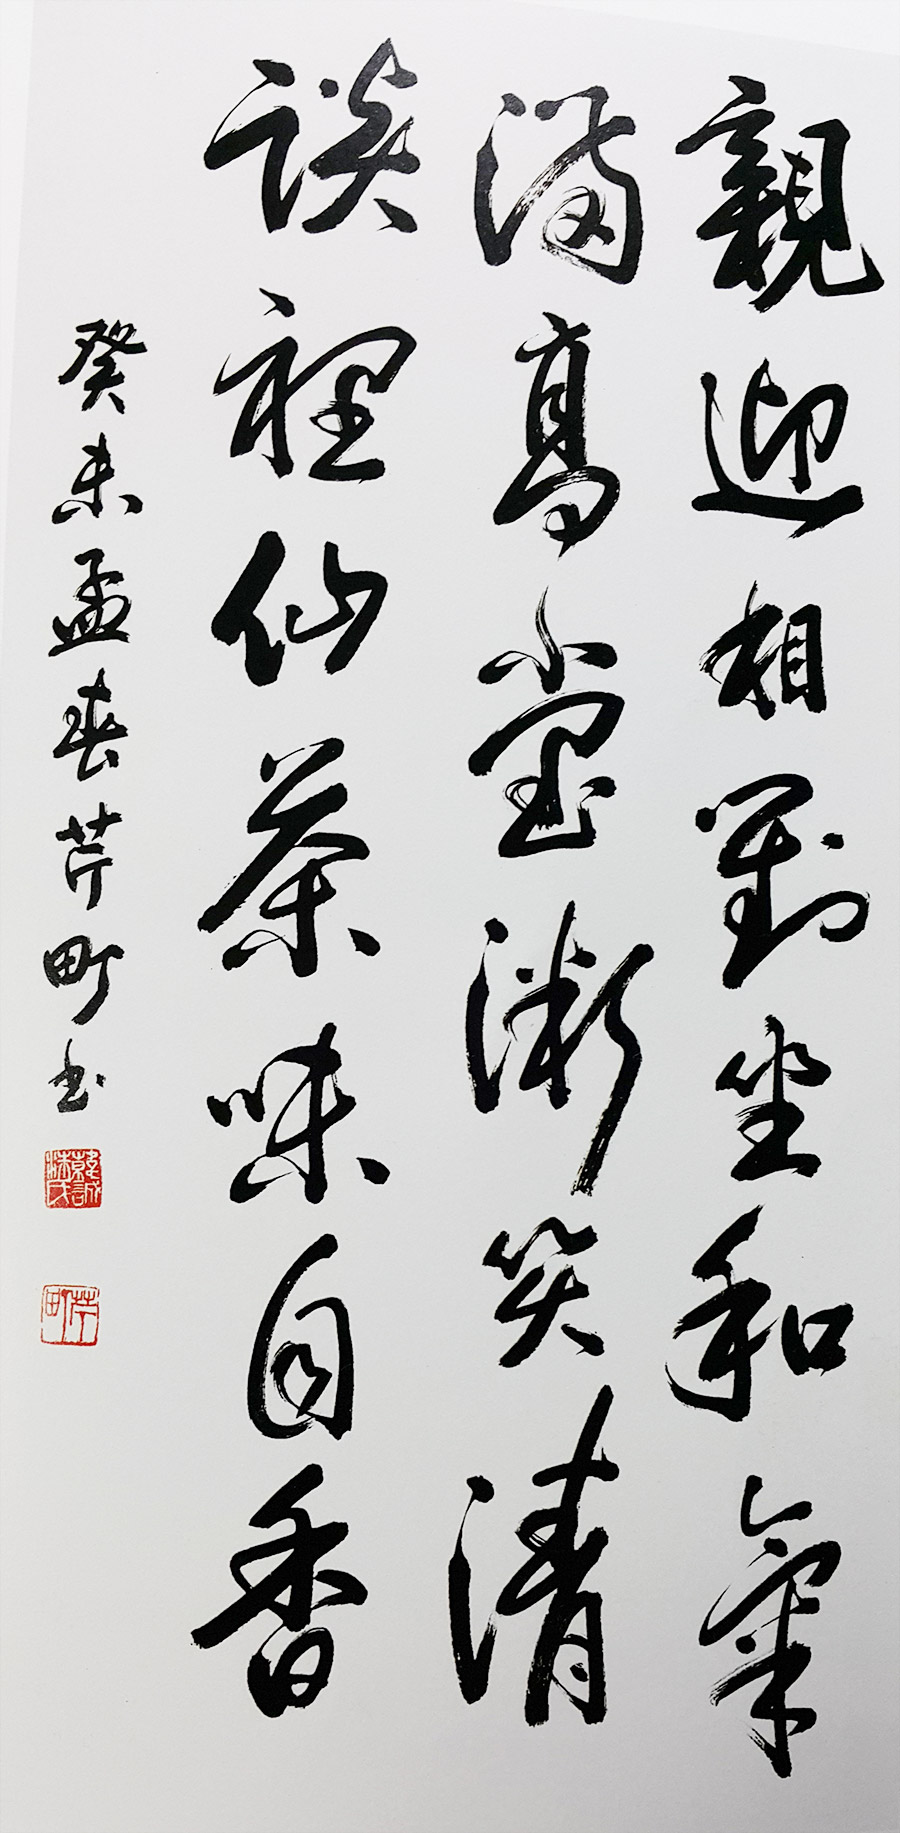 親迎相對坐和氣
滿高堂微笑清
談裡仙茶味自香
癸未孟春芹町書
芹町